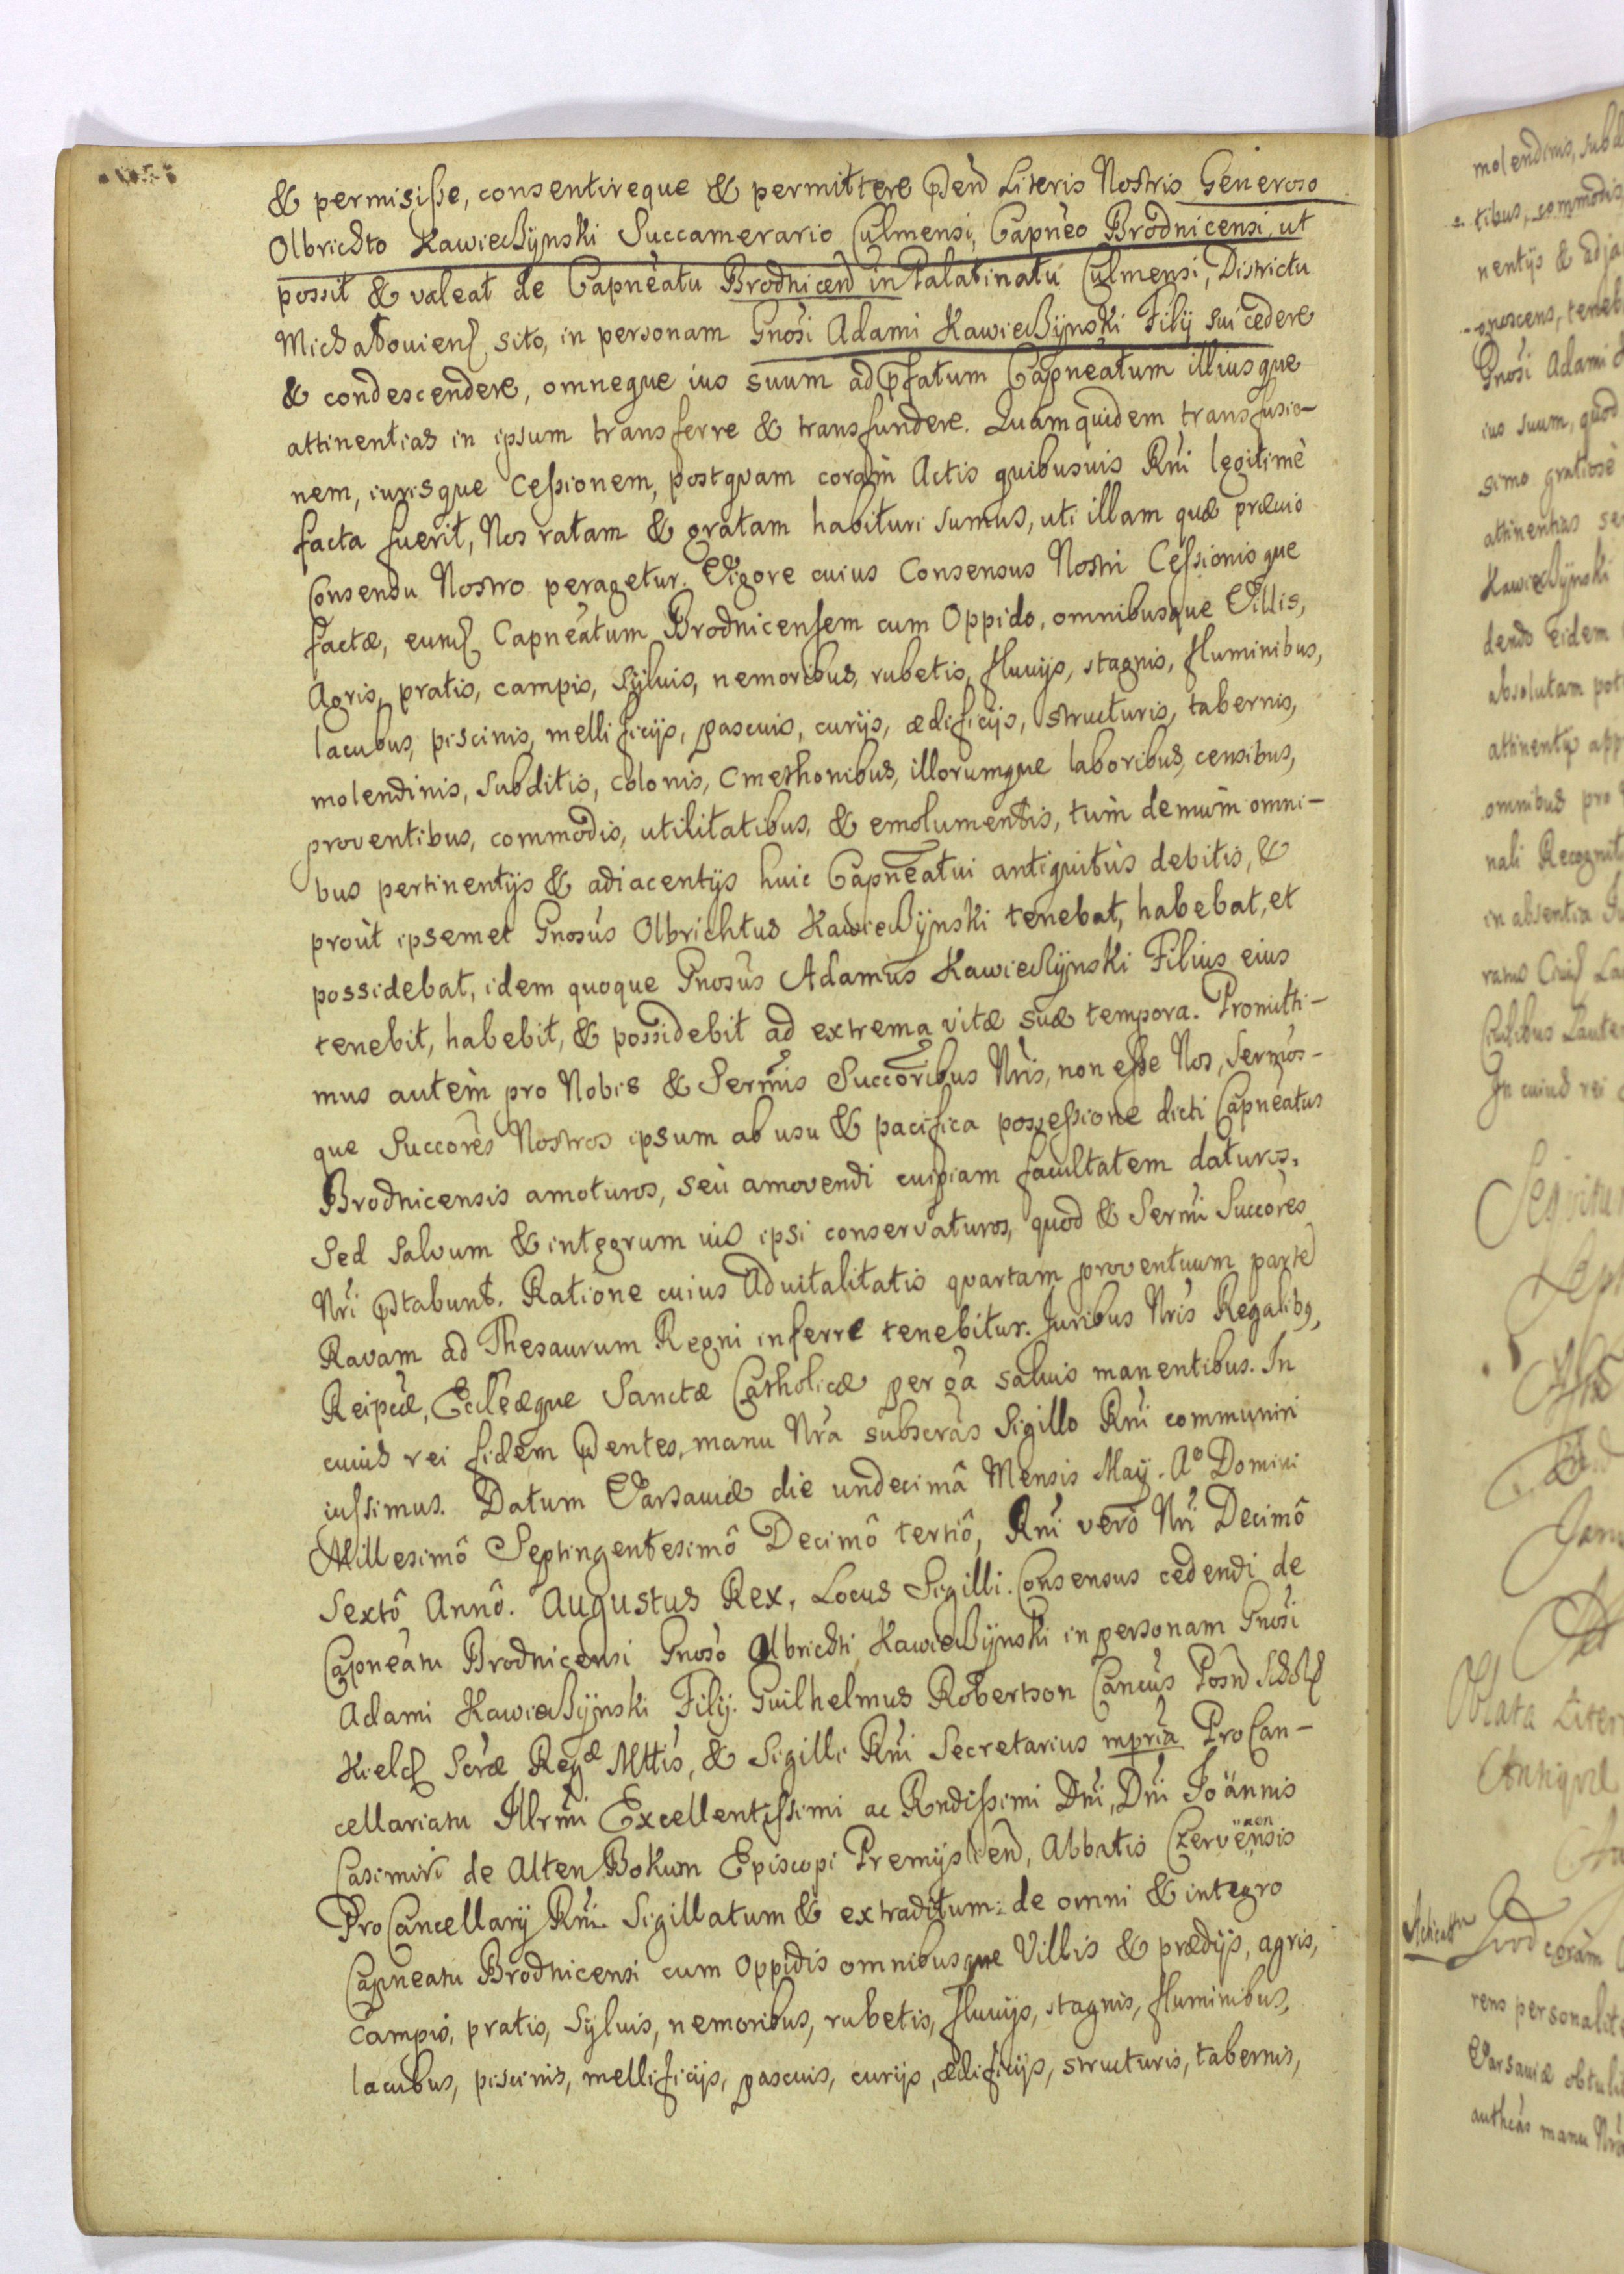 & permisiße, consentireque & permittere p̃dēn Literis Nostris Generoso
Olbrichto Kawieczÿnski Succamerario Culmensi, Capnéo Brodnicensi, ut
possit & valeat de Capnéatu Brodnicen̄ in Palatinatu Culmensi, Districtu
Michałouień sito, in personam Gnosi Adami Kawieczÿnski Filij sui cedere
& condescendere, omneque ius suum ad p̃fatum Capnéatum illiusque
attinentias in ipsum transferre & transfundere. Quam quidem transfusio-
nem, iurisque Ceßionem, postquam coram Actis quibusuis Rni legitimè
facta fuerit, Nos ratam & gratam habituri sumus, uti illam quæ præuio
Consensu Nostro peragetur. Vigore cuius Consensus Nostri Ceßionisque
factæ, eund Capnéatum Brodnicensem cum Oppido, omnibusque Villis,
Agris, pratis, campis, Sÿluis, nemoribus, rubetis, fluuijs, stagnis, fluminibus,
lacubus, piscinis, mellificijs, pascuis, curijs, ædificijs, structuris, tabernis,
molendinis, Subditis, colonis, Cmethonibus, illorumque laboribus, censibus,
proventibus, commodis, utilitatibus, & emolumentis, tùm demùm omni-
bus pertinentijs & adiacentijs huic Capnéatui antiquitùs debitis, &
proùt ipsemet Gnosus Olbrichtus Kawieczÿnski tenebat, habebat, et
possidebat, idem quoque Gnosus Adamus Kawieczÿnski Filius eius
tenebit, habebit, & possidebit ad extrema vitæ suæ tempora. Promitti-
mus autem pro Nobis & Sermis Succoribus Nris, non eße Nos, Sermos-
que Succores Nostros ipsum ab usu & pacifica posseßione dicti Capnéatus
Brodnicensis amoturos, seù amovendi cuipiam facultatem daturos,
Sed salvum & integrum ius ipsi conservaturos, quod & Sermi Succores
Nri p̃stabunt. Ratione cuius Aduitalitatis quartam proventuum parte
Ravam ad Thesaurum Regni inferre tenebitur. Juribus Nris Regalibq,
Reipcæ, Eccleæque Sanctæ Catholicæ per oa saluis manentibus. In
cuius rei fidem p̃dentes, manu Nra subscras Sigillo Rni communiri
iußimus. Datum Varsauiæ die undecimâ Mensis Maij. Aº Domini
Millesimô Septingentesimô Decimô tertiô, Rni verò Nri Decimô
Sextô Annô. Augustus Rex. Locus Sigilli. Consensus cedendi de
Capneatu Brodnicensi Gnoso Olbrichti Kawieczÿnski in personam Gnosi
Adami Kawieczÿnski Filij. Guilhelmus Robertson Cancus Posn
Kielc Scræ Regæ Mttis, & Sigilli Rni Secretarius mpria Pro Can-
cellariatu Illrmi Excellentißimi ac Rndißimi Dni, Dni Joännis
Casimiri de Alten Bokum Episcopi Premÿslień, Abbatis Czervënsis
non
Pro Cancellarij Rni. Sigillatum & extraditum: de omni & integro
Capneatu Brodnicensi cum Oppidis omnibusque Villis & prædijs, agris,
campis, pratis, Sÿluis, nemoribus, rubetis, fluuijs, stagnis, fluminibus,
lacubus, piscinis, mellificijs, pascuis, curijs, ædificijs, structuris, tabernis,